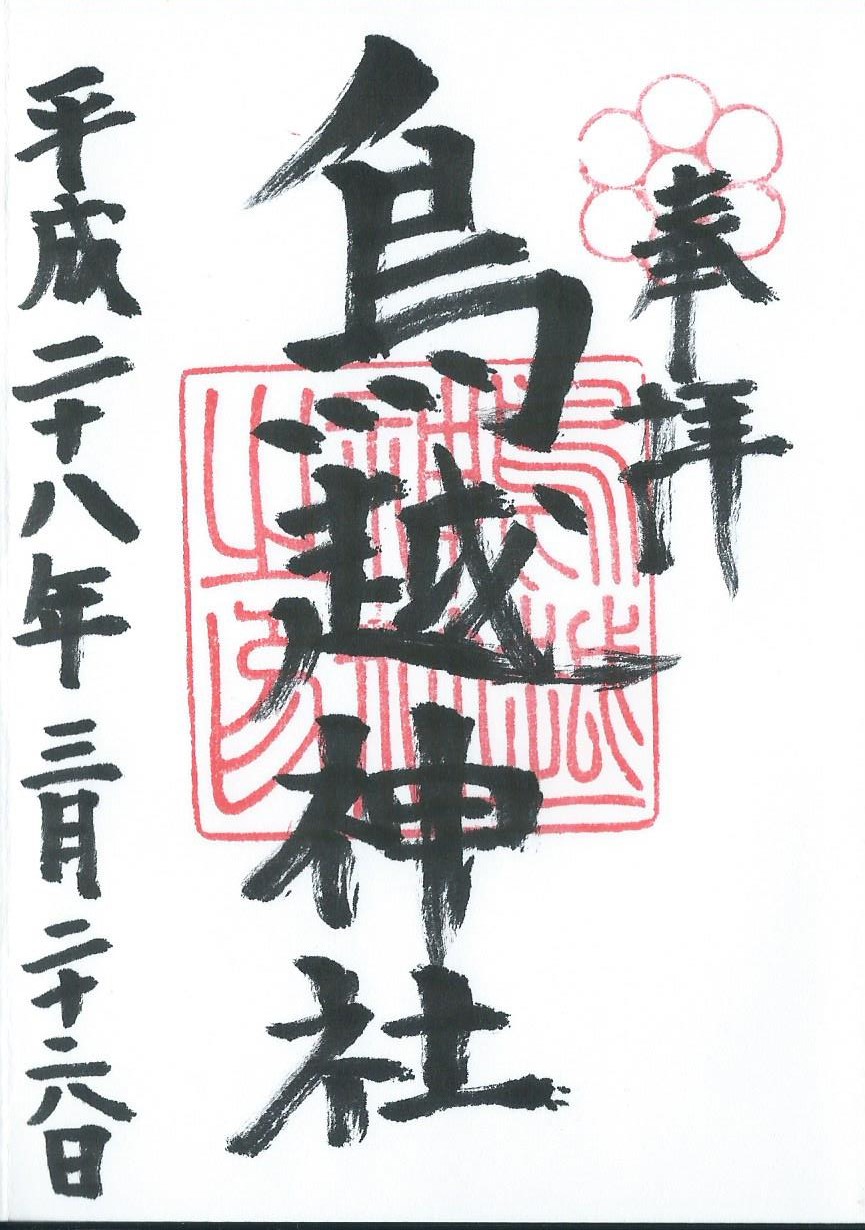 奉拝
鳥越神社
平成二十八年三月二十六日
鳥越
神社
之印